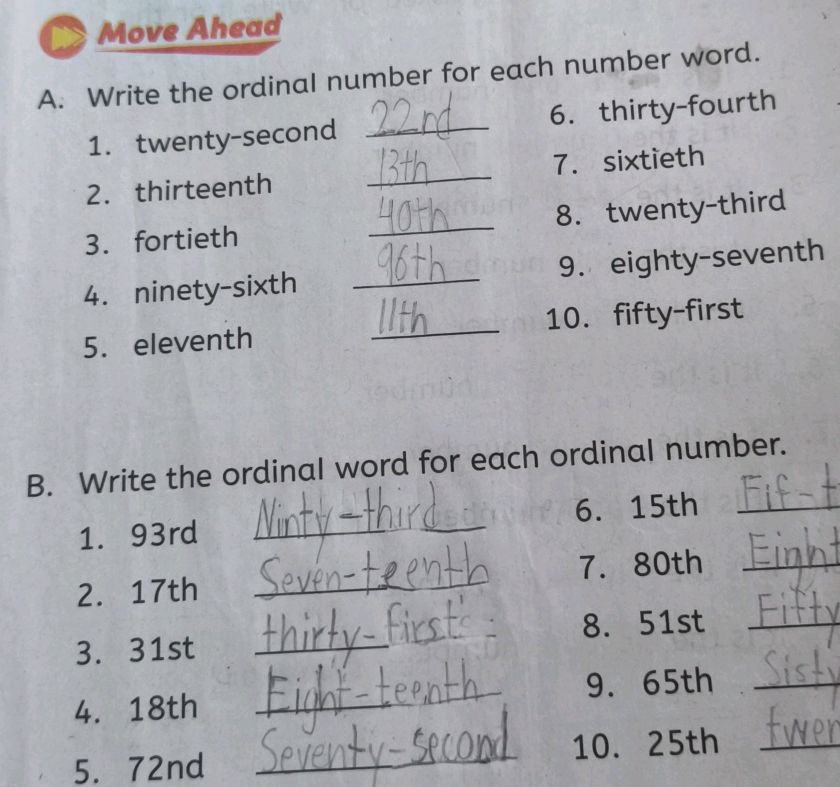 Move Ahead
A. Write the ordinal number for each number word.
1. twenty-second 22nd
2. thirteenth 13th
3. fortieth 40th
4. ninety-sixth 96th
5. eleventh 11th
6. thirty-fourth
7. sixtieth
8. twenty-third
9. eighty-seventh
10. fifty-first
B. Write the ordinal word for each ordinal number.
1. 93rd Ninty-third
2. 17th Seven-teenth
3. 31st thirty-first
4. 18th Eight-teenth
5. 72nd Seventy-second
6. 15th Fif-t
7. 80th Eight
8. 51st Fifty
9. 65th Sisty
10. 25th twen